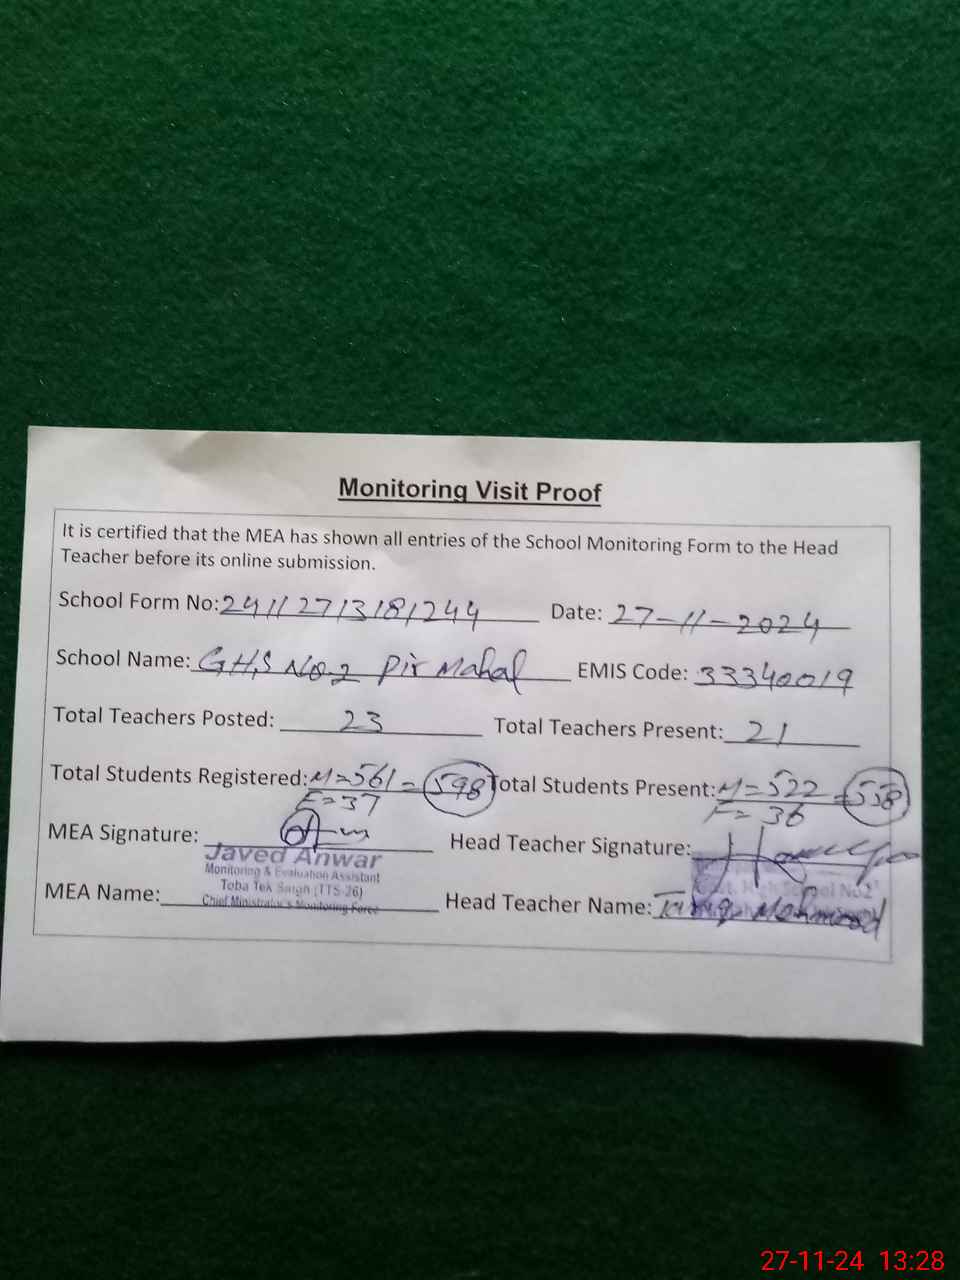 Monitoring Visit Proof
It is certified that the MEA has shown all entries of the School Monitoring Form to the Head
Teacher before its online submission.
School Form No: 24112713181244 Date: 27-11-2024
School Name: GHS No.2 Pir Mahal EMIS Code: 33340019
Total Teachers Posted: 23 Total Teachers Present: 21
Total Students Registered: M=561 = 598 Total Students Present: M=522 = 558
F=37 F=36
MEA Signature: Head Teacher Signature:
Javed Anwar
Monitoring & Evaluation Assistant
Toba Tek Singh (TTS-26)
Chief Minister's Monitoring Force
Govt. High School No.2
MEA Name: Head Teacher Name: Tariq Mehmood
27-11-24 13:28